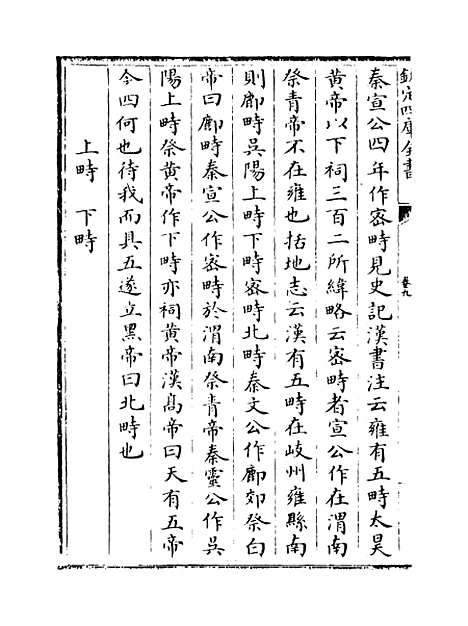 欽定四庫全書
卷九
秦宣公四年作密畤見史記漢書注云雍有五畤太昊
黄帝以下祠三百二所緯略云密畤者宣公作在渭南
祭青帝不在雍也括地志云漢有五畤在岐州雍縣南
則鄜畤吳陽上畤下畤密畤北畤秦文公作鄜郊祭白
帝曰鄜畤秦宣公作密畤於渭南祭青帝秦靈公作吳
陽上畤祭黄帝作下畤亦祠黄帝漢髙帝曰天有五帝
今四何也待我而具五遂立黑帝曰北畤也
上畤 下畤